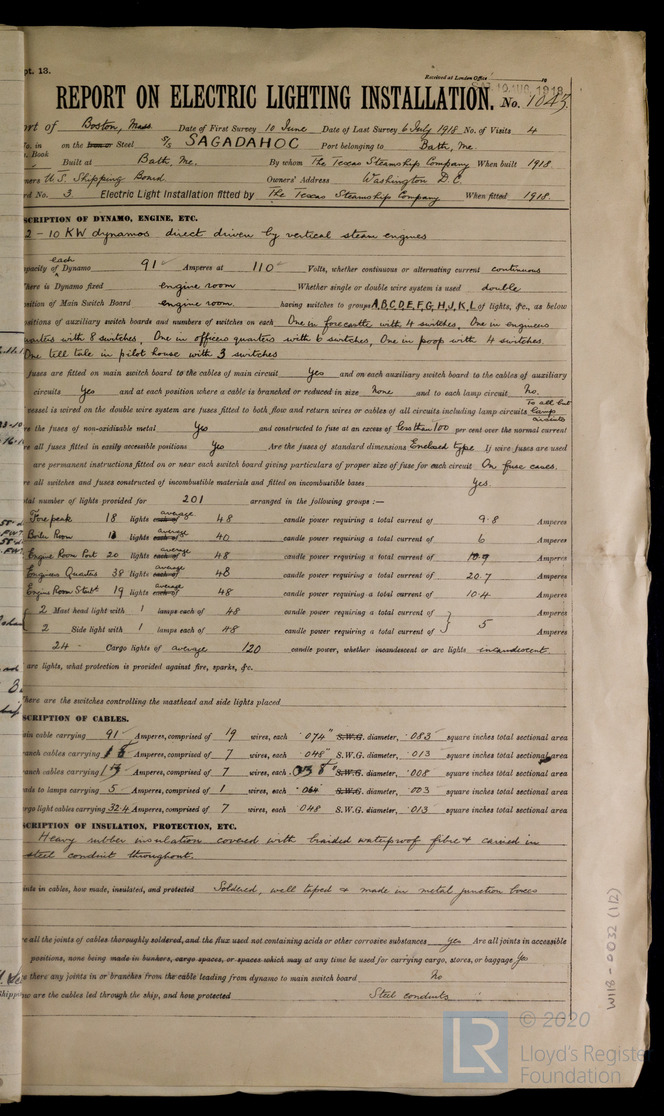 pt. 13.
Received at London Office 19
AUG 1918
REPORT ON ELECTRIC LIGHTING INSTALLATION. No. 1043
ort of Boston, Mass Date of First Survey 10 June Date of Last Survey 6 July 1918 No. of Visits 4
No. in on the Iron or Steel S/S SAGADAHOC Port belonging to Bath, Me.
Book Built at Bath, Me. By whom The Texas Steamship Company When built 1918
ners U.S. Shipping Board. Owners' Address Washington D.C.
rd No. 3. Electric Light Installation fitted by The Texas Steamship Company When fitted 1918.
SCRIPTION OF DYNAMO, ENGINE, ETC.
2 - 10 KW dynamos direct driven by vertical steam engines
apacity of each Dynamo 91 Amperes at 110 Volts, whether continuous or alternating current continuous
here is Dynamo fixed engine room Whether single or double wire system is used double
osition of Main Switch Board engine room. having switches to groups A, B, C, D, E, F, G, H, J, K, L of lights, &c., as below
ositions of auxiliary switch boards and numbers of switches on each One in forecastle with 4 switches, One in engineers
quarters with 8 switches, One in officers quarters with 6 switches, One in poop with 4 switches.
One tell tale in pilot house with 3 switches
fuses are fitted on main switch board to the cables of main circuit Yes and on each auxiliary switch board to the cables of auxiliary
circuits Yes and at each position where a cable is branched or reduced in size None and to each lamp circuit No.
vessel is wired on the double wire system are fuses fitted to both flow and return wires or cables of all circuits including lamp circuits To all but lamp circuits
re the fuses of non-oxidizable metal Yes and constructed to fuse at an excess of less than 100 per cent over the normal current
re all fuses fitted in easily accessible positions Yes Are the fuses of standard dimensions Enclosed type If wire fuses are used
are permanent instructions fitted on or near each switch board giving particulars of proper size of fuse for each circuit On fuse cases.
re all switches and fuses constructed of incombustible materials and fitted on incombustible bases Yes.
otal number of lights provided for 201 arranged in the following groups :—
Fore peak 18 lights each of average 48 candle power requiring a total current of 9.8 Amperes
Boiler Room lights each of average 40 candle power requiring a total current of 6 Amperes
Engine Room Port 20 lights each of average 48 candle power requiring a total current of 10.9 Amperes
Engineers Quarters 38 lights each of average 48 candle power requiring a total current of 20.7 Amperes
Engine Room Starb 19 lights each of average 48 candle power requiring a total current of 10.4 Amperes
2 Mast head light with 1 lamps each of 48 candle power requiring a total current of 5 Amperes
2 Side light with 1 lamps each of 48 candle power requiring a total current of Amperes
24 Cargo lights of average 120 candle power, whether incandescent or arc lights incandescent.
arc lights, what protection is provided against fire, sparks, &c.
here are the switches controlling the masthead and side lights placed
SCRIPTION OF CABLES.
ain cable carrying 91 Amperes, comprised of 19 wires, each .074" S.W.G. diameter, .083 square inches total sectional area
anch cables carrying Amperes, comprised of 7 wires, each .048" S.W.G. diameter, .013 square inches total sectional area
anch cables carrying Amperes, comprised of 7 wires, each S.W.G. diameter, .008 square inches total sectional area
ads to lamps carrying 5 Amperes, comprised of 1 wires, each .064 S.W.G. diameter, .003 square inches total sectional area
rgo light cables carrying 32.4 Amperes, comprised of 7 wires, each .048 S.W.G. diameter, .013 square inches total sectional area
SCRIPTION OF INSULATION, PROTECTION, ETC.
Heavy rubber insulation covered with braided waterproof fibre & carried in
steel conduit throughout.
ints in cables, how made, insulated, and protected Soldered, well taped & made in metal junction boxes
re all the joints of cables thoroughly soldered, and the flux used not containing acids or other corrosive substances Yes Are all joints in accessible
positions, none being made in bunkers, cargo spaces, or spaces which may at any time be used for carrying cargo, stores, or baggage Yes
re there any joints in or branches from the cable leading from dynamo to main switch board No
ow are the cables led through the ship, and how protected Steel conduits
W118-0032 (1/2)
LR © 2020
Lloyd's Register
Foundation